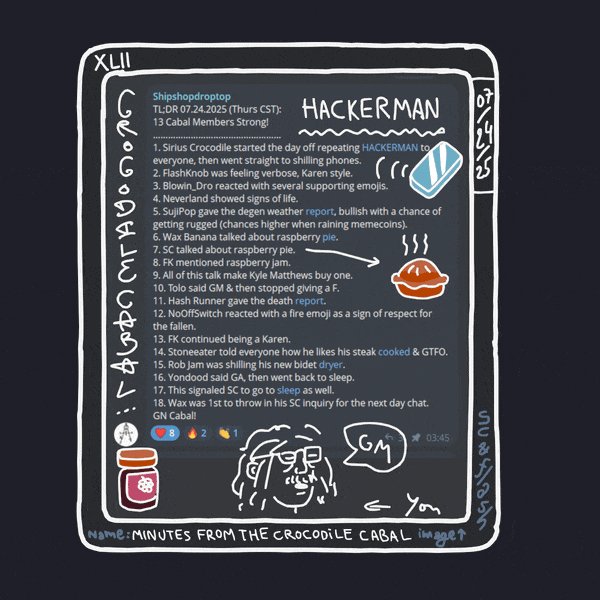 XLII
07/24/25
Shipshopdroptop
TL;DR 07.24.2025 (Thurs CST):
13 Cabal Members Strong!
HACKERMAN
1. Sirius Crocodile started the day off repeating HACKERMAN to
everyone, then went straight to shilling phones.
2. FlashKnob was feeling verbose, Karen style.
3. Blowin_Dro reacted with several supporting emojis.
4. Neverland showed signs of life.
5. SujiPop gave the degen weather report, bullish with a chance of
getting rugged (chances higher when raining memecoins).
6. Wax Banana talked about raspberry pie.
7. SC talked about raspberry pie.
8. FK mentioned raspberry jam.
9. All of this talk make Kyle Matthews buy one.
10. Tolo said GM & then stopped giving a F.
11. Hash Runner gave the death report.
12. NoOffSwitch reacted with a fire emoji as a sign of respect for
the fallen.
13. FK continued being a Karen.
14. Stoneeater told everyone how he likes his steak cooked & GTFO.
15. Rob Jam was shilling his new bidet dryer.
16. Yondood said GA, then went back to sleep.
17. This signaled SC to go to sleep as well.
18. Wax was 1st to throw in his SC inquiry for the next day chat.
GN Cabal!
8 2 1
3 03:45
GM
You
Name: MINUTES FROM THE CROCODILE CABAL image